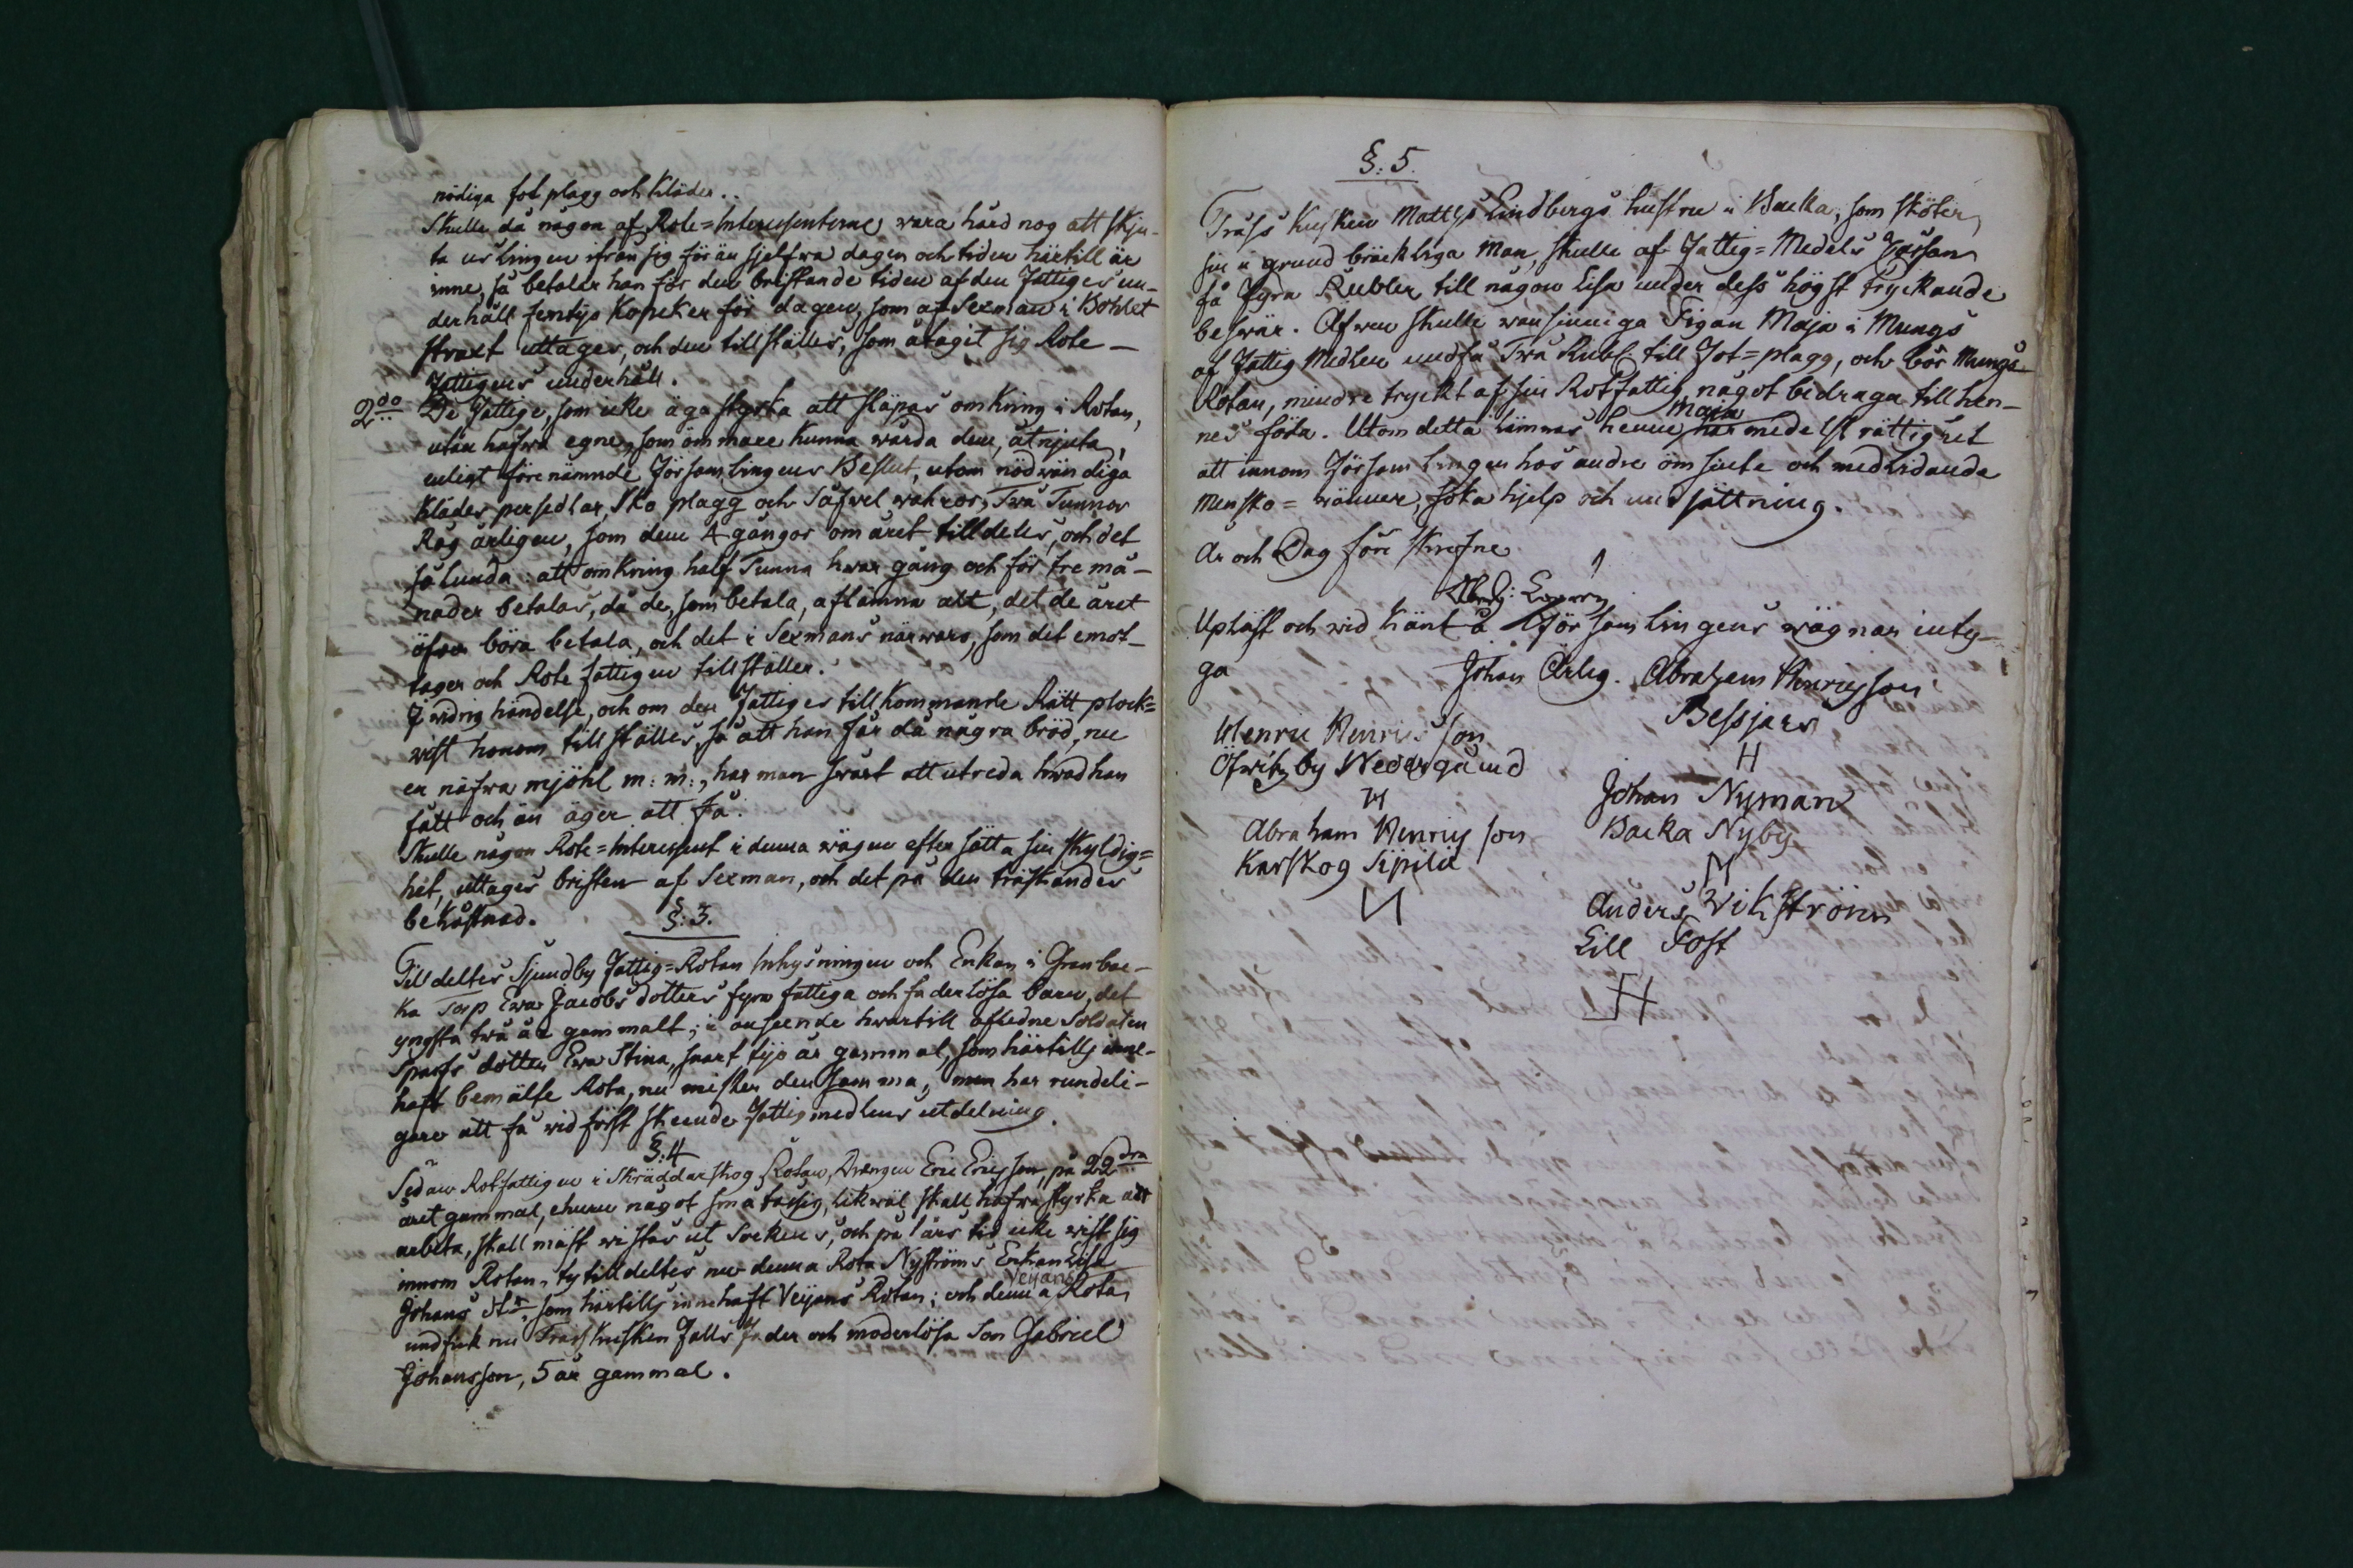 nödiga fot plagg och Kläder..
Skulle då någon af Rote=Interessenterne wara hård nog att skju-
ta uslingen ifrån sig förän sjelfwa dagen och tiden härtill är
inne, så betalar han för den bristande tiden af den Fattiges un-
derhåll femtyo Kopeker för dagen, som af Sexman i Bohlet
straxt uttages, och den tillställes, som åtagit sig Rote-
Fattigens underhåll.
2do De Fattige, som icke äga styrka att släpas omkring i Rotan,
utan hafwa egne, som ömmare kunna wårda dem, åtnjuta,
enligt förenämnde Församlingens Beslut, utom nödwändiga
Kläder persedlar, Sko plagg och Såfwel wahror, Twå Tunnor
Råg årligen, som dem 4 gångor om året tilldeles, och det
sålunda: att omkring half Tunna hwar gång och för tre må-
nader betalas, då de, som betala, aflämna alt, det de året
öfwer böra betala, och det i Sexmans närwaro, som det emot-
tager och Rote fattigen tillställer.
I widrig händelse, och om den Fattiges tillkommande Rätt plock=
wist honom tillställes, så att han får då några bröd, nu
en näfwa mjöhl m: m:, har man swårt att utreda hwad han
fått och än äger att få.
Skulle någon Rote=Interessent i denna wägen efter sätta sin skyldig=
het, uttages bristen af Sexman, och det på den tráskandes
bekåstnad.
§: 3.
Tilldeltes Sjundby Fattig=Rotan Inhysningen och Enkan i Granbac-
ka Torp Ewa Jacobs dotters fyra fattiga och faderlösa barn, det
yngsta twå år gammalt; i anseende hwartill afledne Soldaten
Sparfs dotter Ewa Stina, snart tijo år gammal, som härtills inne-
haft bemälte Rota, nu mister densamma, men har rundeli-
gare att få wid först skeende Fattigmedlens utdelning.
§: 4
Sedan Rotfattigen i Skräddarskog Rotan, Drängen Eric Ericsson, på 22dra
året gammal, ehuru något små tåsig, likwäl skall hafwa styrka att
arbeta, skall mäst wistas ut Sockens, och på 1 års tid icke wist sig
innom Rotan, ty tilldeltes nu denna Rota Nyströms Enkan Lisa
Veijans
Johans dtr, som härtills innehaft Veijans Rotan; och denna Rota
undfick nu Träskkusken Falls Fader och moderlösa Son Gabriel
Johansson, 5 år gammal.
§: 5.
Träsk Kusken Matts Lindbergs hustru i Backa, som sköter
sin i grund bräckliga Man, skulle af Fattig=Medels Cassan
få Fyra Rubler till någon Lisa under dess högst tryckande
beswär. Äfwen skulle wansinniga Pigan Maja i Mungs
af Fattig Medlen undfå Twå Rubl: till Fot=plagg, och bör Mungs
Rotan, mindre tryckt af sin Rotfattig, något bedraga till hen-
Maja
nes föda. Utom detta lämnas henne här medelst rättighet
att innom Församlingen hos andre ömsinte och medlidande
Mensko=wänner, söka hjelp och undsättning.
År och Dag före skrefne
Upläst och wid känt å Församlingens wägnar inty-
ga
Johan Ärlig. Abraham Henricsson
Bessjars
H
Henric Henricsson
Öfwitzby Nedergård
H
Johan Nyman
Backa Nyby
Abraham Henricsson
Karskog Sipilä
Anders Wikström
Lill Tost
H